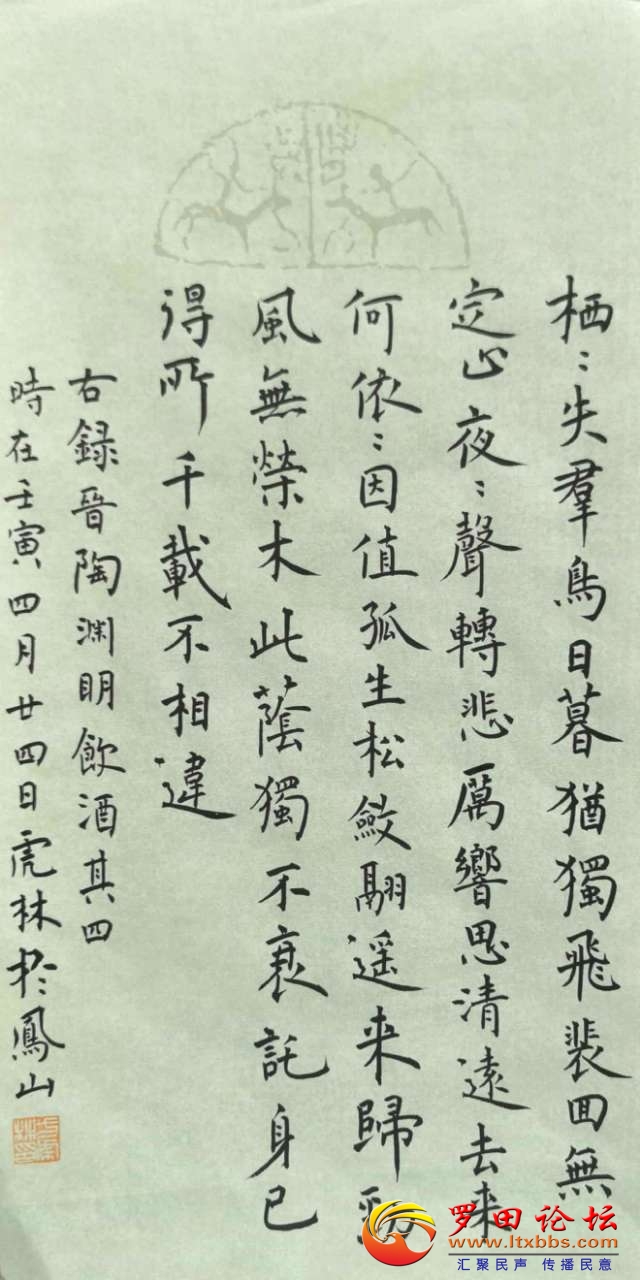 栖〻失羣鳥日暮猶獨飛裴回無
定止夜〻聲轉悲厲響思清遠去来
何依〻因值孤生松斂翮遥来歸勁
風無榮木此蔭獨不衰託身已
得所千載不相違
右録晉陶渊明飲酒其四
時在壬寅四月廿四日虎林於鳳山
罗田论坛
www.ltxbbs.com
汇聚民声 传播民意